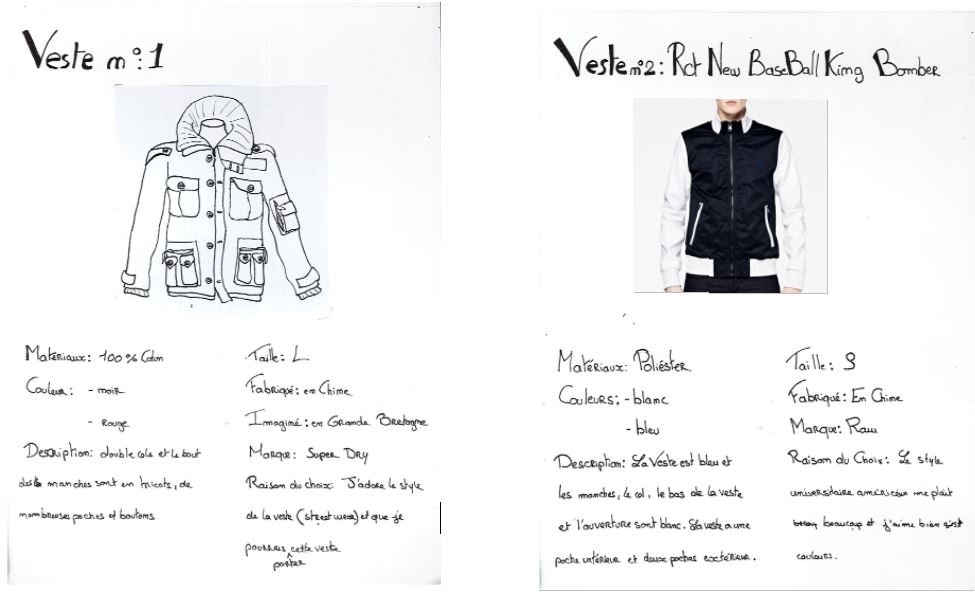 Veste n°:1
Matériaux: 100% Coton
Couleur: - noir
- Rouge
Description: double cole et le bout
des manches sont en tricots, de
nombreuses poches et boutons
Taille: L
Fabriqué: en Chine
Imaginé: en Grande Bretagne
Marque: Super Dry
Raison du choix: J'adore le style
de la veste (street wear) et que je
pourrais cette veste
porter
Veste n°2: Rct New BaseBall King Bomber
Matériaux: Poliéster
Couleurs: - blanc
- bleu
Description: La Veste est bleu et
les manches, le col, le bas de la veste
et l'ouverture sont blanc. La veste a une
poche intérieur et deux poches extérieur.
Taille: S
Fabriqué: En Chine
Marque: Raw
Raison du Choix: Le style
universitaire américain me plait
beaucoup et j'aime bien
couleurs.